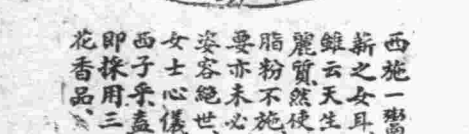 西施一鬻
薪之女耳
雖云天生
麗質、然使
脂粉不施
要亦未必
姿容絕世、
女士心儀
西子乎、盍
即採用三
花香品、